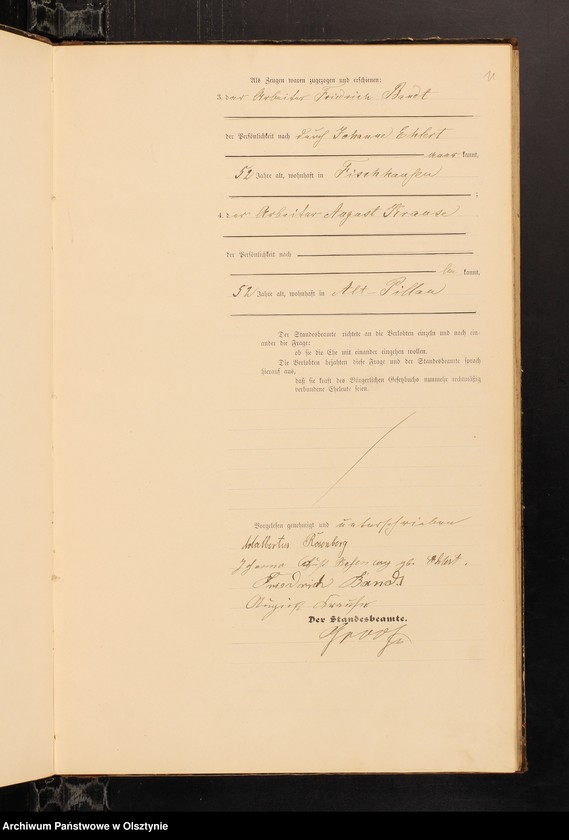 Als Zeugen waren zugezogen und erschienen:
3. der Arbeiter Friedrich Bandt
der Persönlichkeit nach durch Johanne Ehlert
aner kannt,
52 Jahre alt, wohnhaft in Fischhausen
;
4. der Arbeiter August Krause
der Persönlichkeit nach
be kannt,
52 Jahre alt, wohnhaft in Alt-Pillau
Der Standesbeamte richtete an die Verlobten einzeln und nach ein-
ander die Frage:
ob sie die Ehe mit einander eingehen wollen.
Die Verlobten bejahten diese Frage und der Standesbeamte sprach
hierauf aus,
daß sie kraft des Bürgerlichen Gesetzbuchs nunmehr rechtmäßig
verbundene Eheleute seien.
Vorgelesen, genehmigt und unterschrieben
Adalbertus Rosenberg
Johanna Rosenberg gb. Ehlert.
Friedrich Bandt
August Krause
Der Standesbeamte.
Archiwum Państwowe w Olsztynie